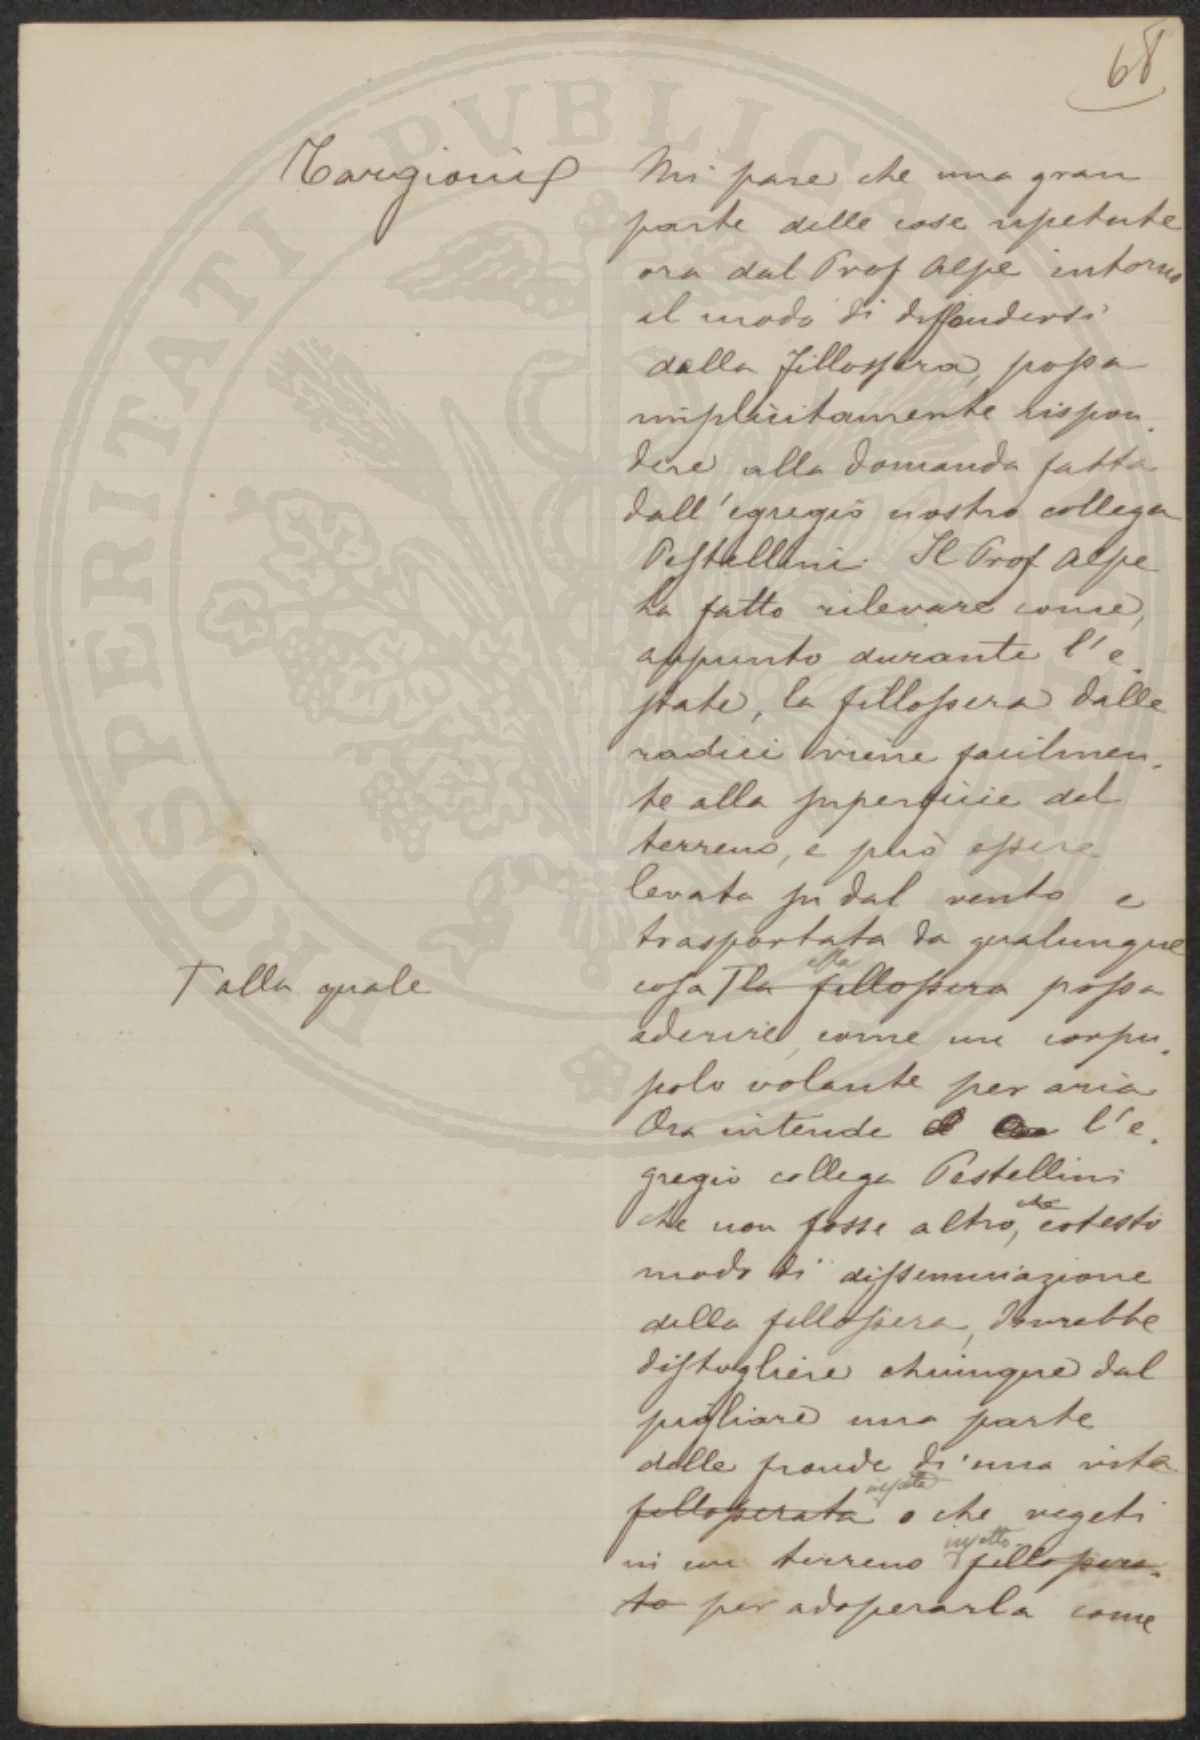 68
Targioni
Mi pare che una gran
parte delle cose ripetute
ora dal Prof Alpe intorno
al modo di diffondersi
della fillossera, possa
implicitamente rispon-
dere alla domanda fatta
dall'egregio nostro collega
Pestellini. Il Prof Alpe
ha fatto rilevare come,
appunto durante l'e-
state, la fillossera dalle
radici viene facilmen-
te alla superficie del
terreno, e può essere
levata su dal vento e
trasportata da qualunque
T alla quale
cosa T la fillossera essa possa
aderire, come un corpu-
solo volante per aria
Ora intende l'e-
gregio collega Pestellini
che non fosse altro, che cotesto
modo di disseminazione
della fillossera, dovrebbe
distogliere chiunque dal
pigliare una parte
delle fronde di una vite
fillosserata infetta o che vegeti
in un terreno infetto fillossera-
to per adoperarla come
PROSPERITATI PVBLICAE